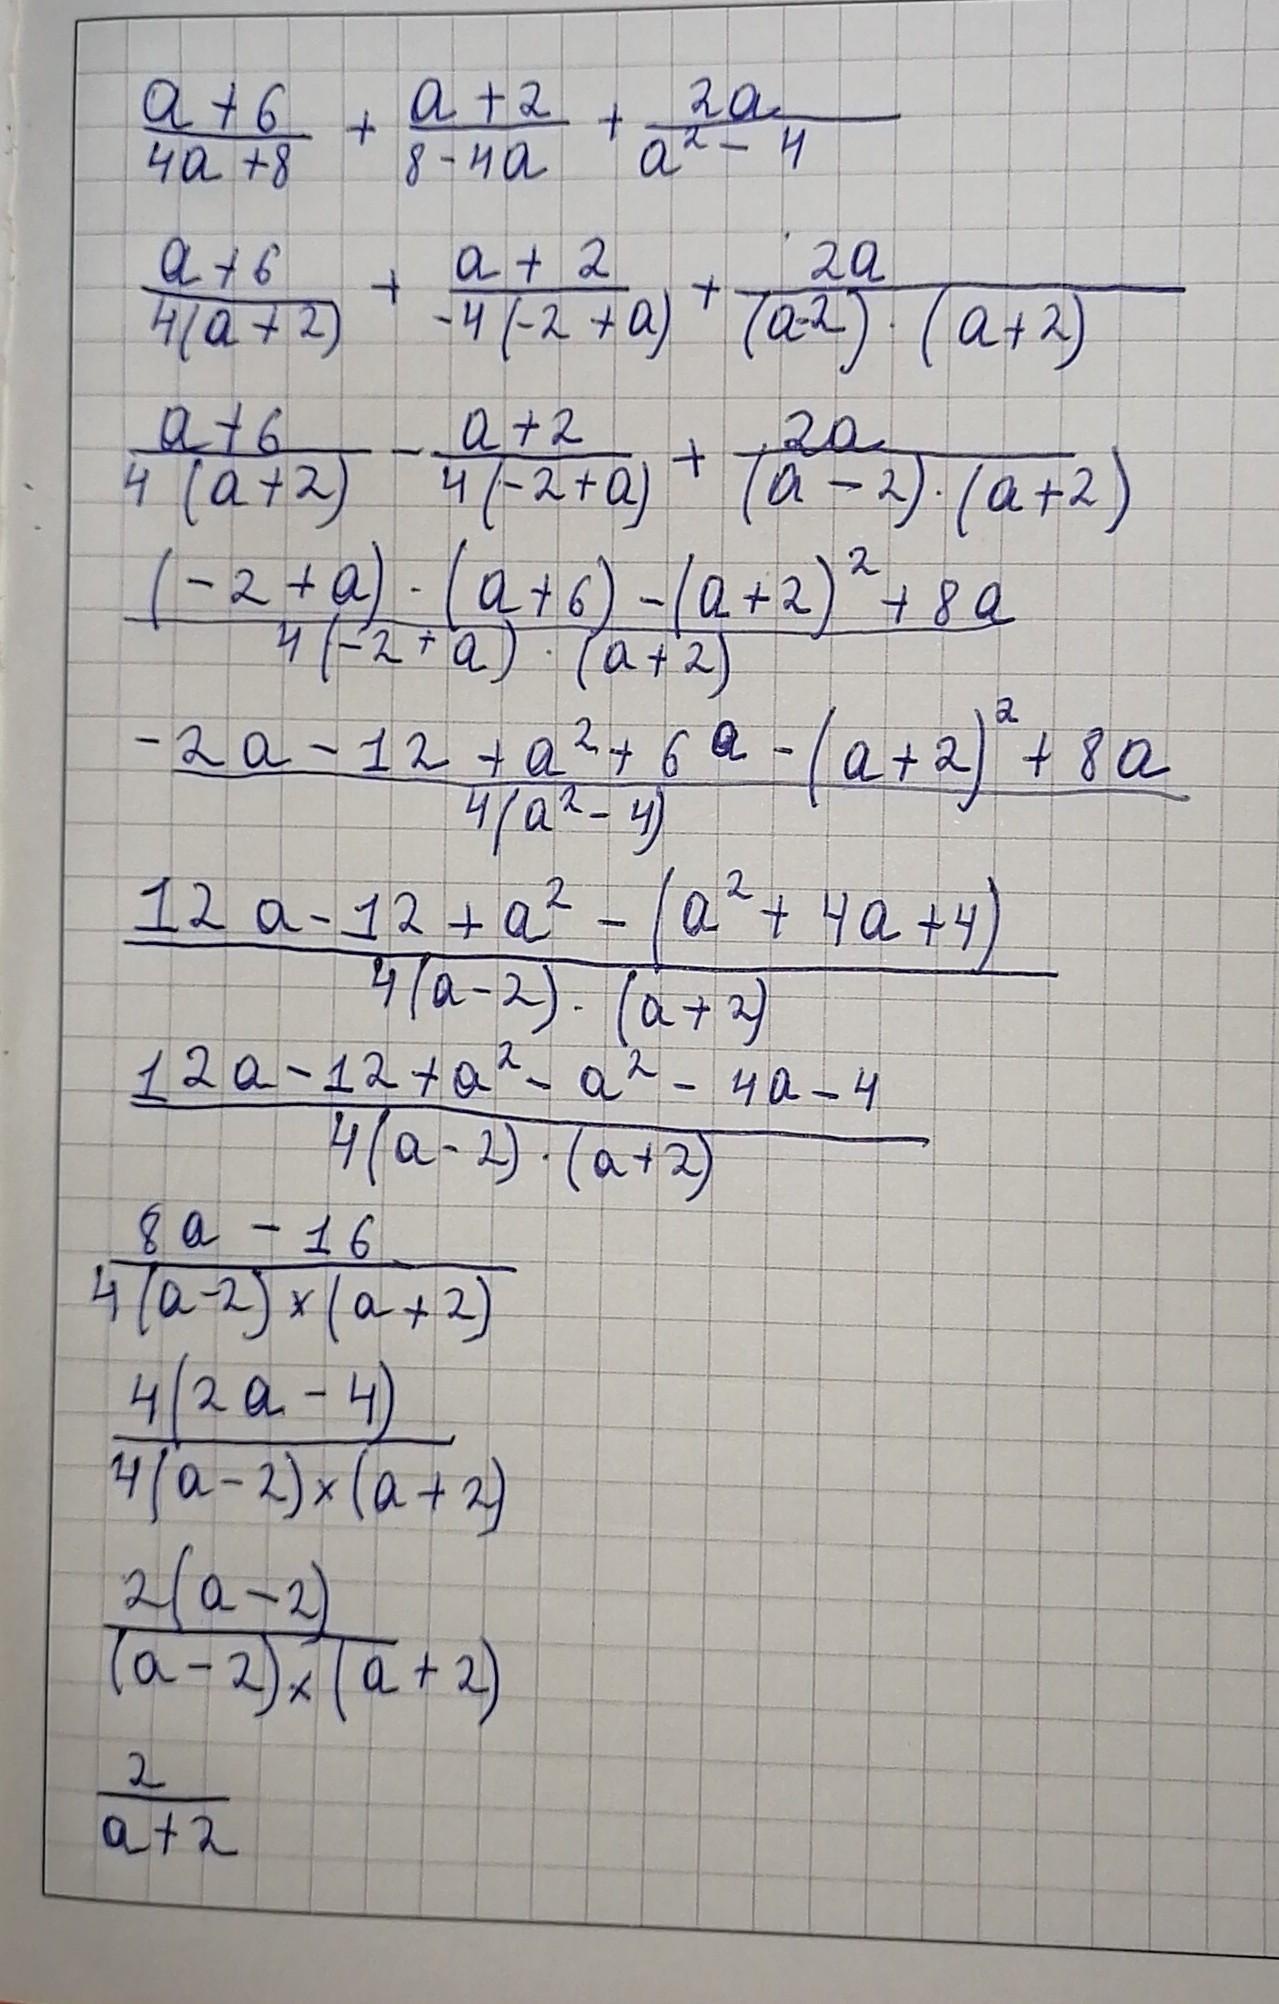 (a+6)/(4a+8) + (a+2)/(8-4a) + 2a/(a²-4)
(a+6)/(4(a+2)) + (a+2)/(-4(-2+a)) + 2a/((a-2)·(a+2))
(a+6)/(4(a+2)) - (a+2)/(4(-2+a)) + 2a/((a-2)·(a+2))
((-2+a)·(a+6)-(a+2)²+8a)/(4(-2+a)·(a+2))
(-2a-12+a²+6a-(a+2)²+8a)/(4(a²-4))
(12a-12+a²-(a²+4a+4))/(4(a-2)·(a+2))
(12a-12+a²-a²-4a-4)/(4(a-2)·(a+2))
(8a-16)/(4(a-2)×(a+2))
4(2a-4)/(4(a-2)×(a+2))
2(a-2)/((a-2)×(a+2))
2/(a+2)